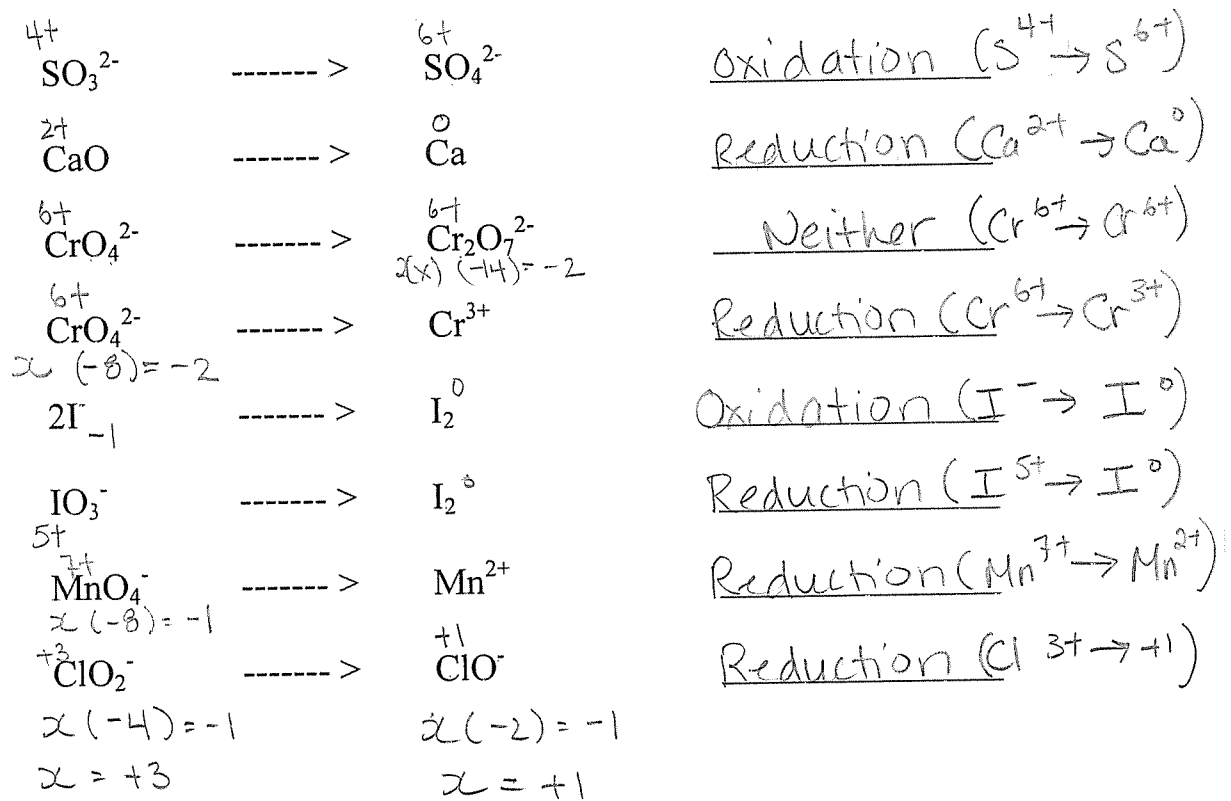 4+ 6+
SO₃²⁻ -------> SO₄²⁻ Oxidation (S⁴⁺ → S⁶⁺)
2+ 0
CaO -------> Ca Reduction (Ca²⁺ → Ca⁰)
6+ 6+
CrO₄²⁻ -------> Cr₂O₇²⁻ Neither (Cr⁶⁺ → Cr⁶⁺)
2(x) (-14) = -2
6+
CrO₄²⁻ -------> Cr³⁺ Reduction (Cr⁶⁺ → Cr³⁺)
x (-8) = -2
2I⁻ -------> I₂⁰ Oxidation (I⁻ → I⁰)
-1
IO₃⁻ -------> I₂⁰ Reduction (I⁵⁺ → I⁰)
5+
7+
MnO₄⁻ -------> Mn²⁺ Reduction (Mn⁷⁺ → Mn²⁺)
x (-8) = -1
+3 +1
ClO₂⁻ -------> ClO⁻ Reduction (Cl 3+ → +1)
x (-4) = -1 x (-2) = -1
x = +3 x = +1